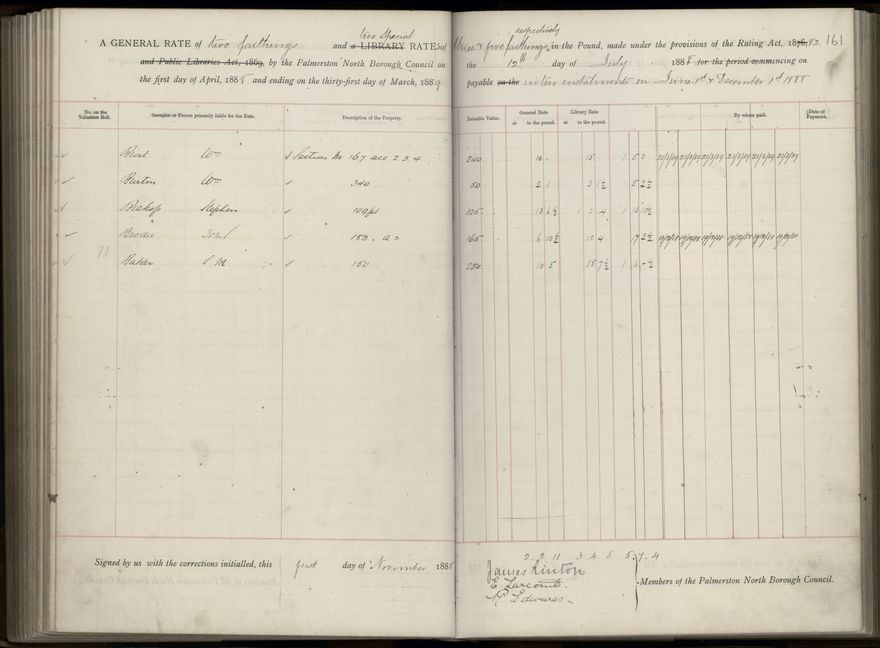 161
two Special
respectively
A GENERAL RATE of two farthings and a LIBRARY RATES of three & five farthings, in the Pound, made under the provisions of the Rating Act, 1876, 82
and Public Libraries Act, 1869, by the Palmerston North Borough Council on the 12th day of July 1888 for the period commencing on
the first day of April, 1888 and ending on the thirty-first day of March, 1889 payable on the in two instalments on June 1st & December 1st 1888
No. on the Valuation Roll. Occupier or Person primarily liable for the Rate. Description of the Property. Rateable Value. General Rate at in the pound. Library Rate at in the pound. By whom paid. Date of Payment.
Burt Wm Section No 167 240 10 15 1 5 0
Burton Wm 340 50 2 1 3 1½ 5 2½
Bishop Stephen 325 13 6½ 1 0 4 1 13 10½
Brodie John 183 165 6 10½ 10 4 17 2½
77
Baker S M 150 250 10 5 15 7½ 1 6 - ½
2 . 2 11 3 4 5 5 . 7 . 4
Signed by us with the corrections initialled, this first day of November 1888
James Linton
E. Larcomb
Edwards
Members of the Palmerston North Borough Council.